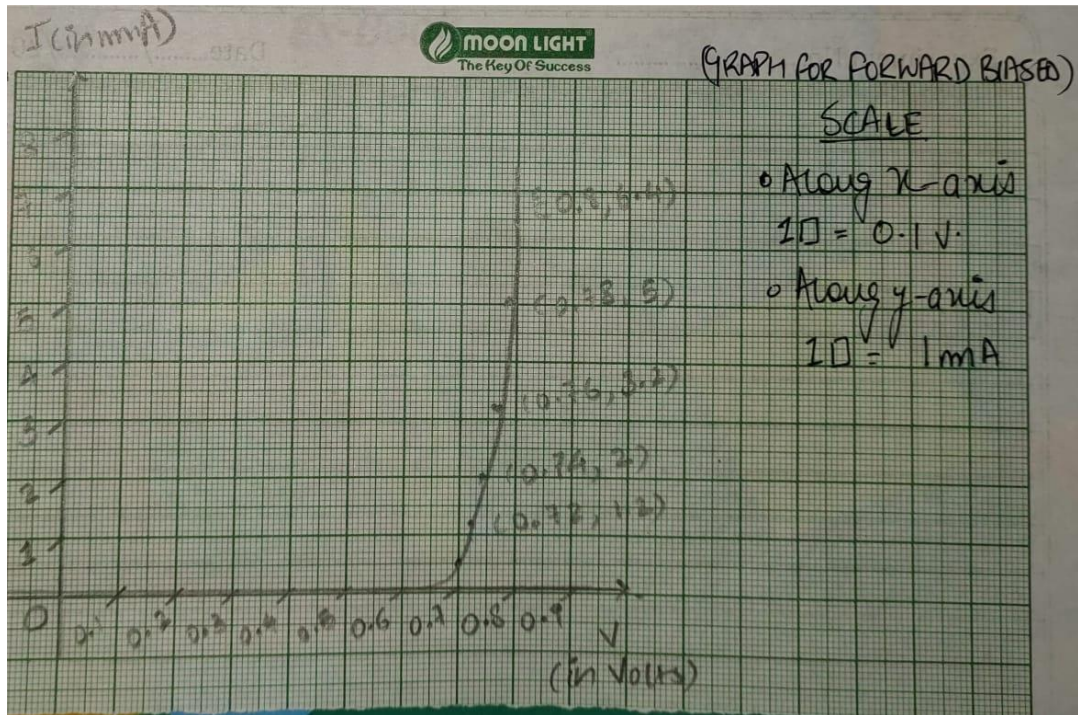 I (in mA)
MOON LIGHT
The Key Of Success
(GRAPH FOR FORWARD BIASED)
SCALE
• Along x-axis
1□ = 0.1 V.
• Along y-axis
1□ = 1mA
8
7
6
5
(0.78, 5)
4
(0.76, 3.2)
3
(0.74, 2)
2
(0.72, 1.2)
1
0 0.1 0.2 0.3 0.4 0.5 0.6 0.7 0.8 0.9 V
(in Volts)